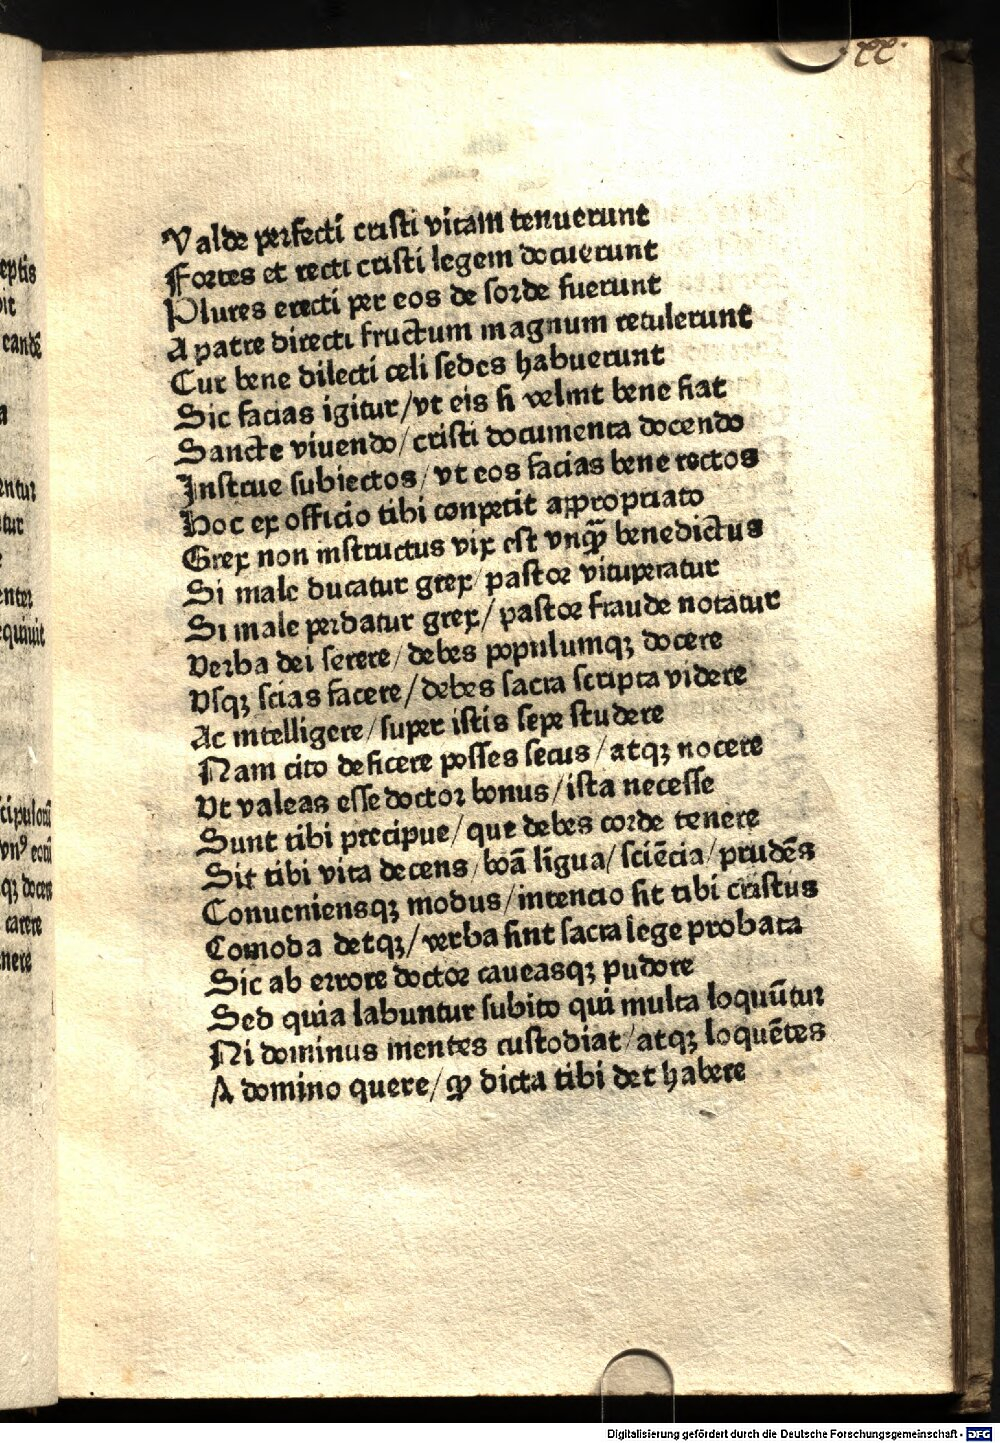 .xx.
Valde perfecti cristi vitam tenuerunt
Fortes et recti cristi legem docuerunt
Plures erecti per eos de sorde fuerunt
A patre directi fructum magnum retulerunt
Cur bene dilecti celi sedes habuerunt
Sic facias igitur/vt eis si velint bene fiat
Sancte viuendo/cristi documenta docendo
Instrue subiectos/vt eos facias bene rectos
Hoc ex officio tibi conpetit appropriato
Grex non instructus vix est vnqꝫ benedictus
Si male ducatur grex/pastor vituperatur
Si male perdatur grex/pastor fraude notatur
Verba dei serere/debes populumqꝫ docere
Vsqꝫ scias facere/debes sacra scripta videre
Ac intelligere/super istis sepe studere
Nam cito deficere posses secus/atqꝫ nocere
Vt valeas esse doctor bonus/ista necesse
Sunt tibi precipue/que debes corde tenere
Sit tibi vita decens/boā lingua/sciēcia/prudēs
Conueniensqꝫ modus/intencio sit tibi cristus
Comoda detqꝫ/verba sint sacra lege probata
Sic ab errore doctor caueasqꝫ pudore
Sed quia labuntur subito qui multa loquūtur
Ni dominus mentes custodiat/atqꝫ loquētes
A domino quere/qꝫ dicta tibi det habere
eptis
candē
entur
tur
enter
equiuit
scipulorū
vnꝰ eorū
qꝫ docere
carere
nere
Digitalisierung gefördert durch die Deutsche Forschungsgemeinschaft - DFG